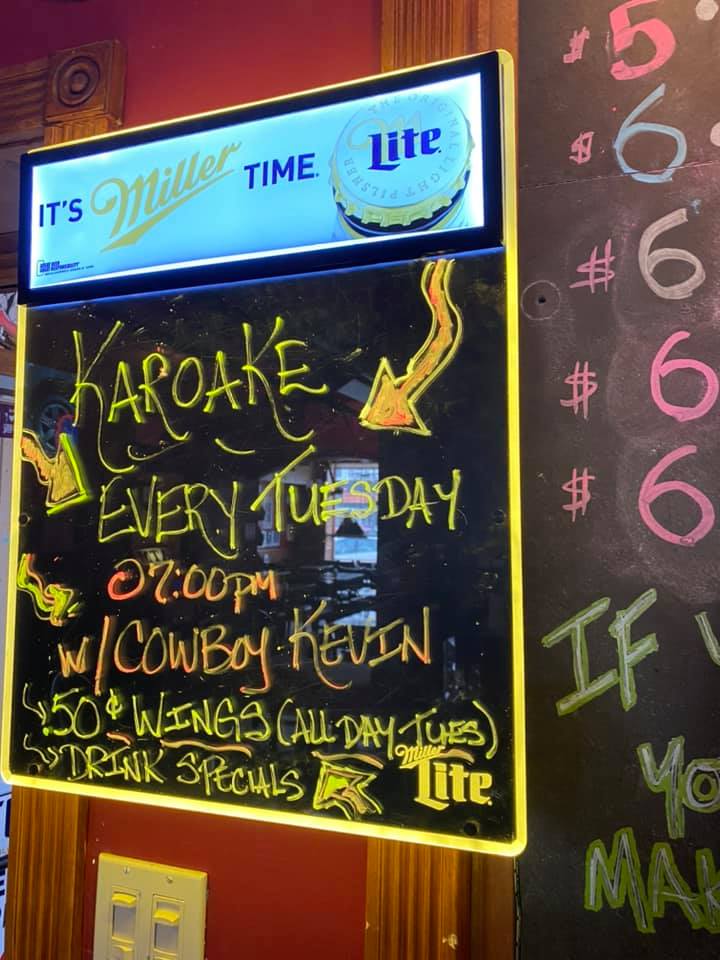 IT'S Miller TIME.
THE ORIGINAL LIGHT PILSNER
Lite
KAROAKE
EVERY TUESDAY
07:00PM
W/COWBOY KEVIN
.50¢ WINGS (ALL DAY TUES)
DRINK SPECIALS
Miller
Lite
$5
$6
$6
$6
$6
IF
YO
MAK